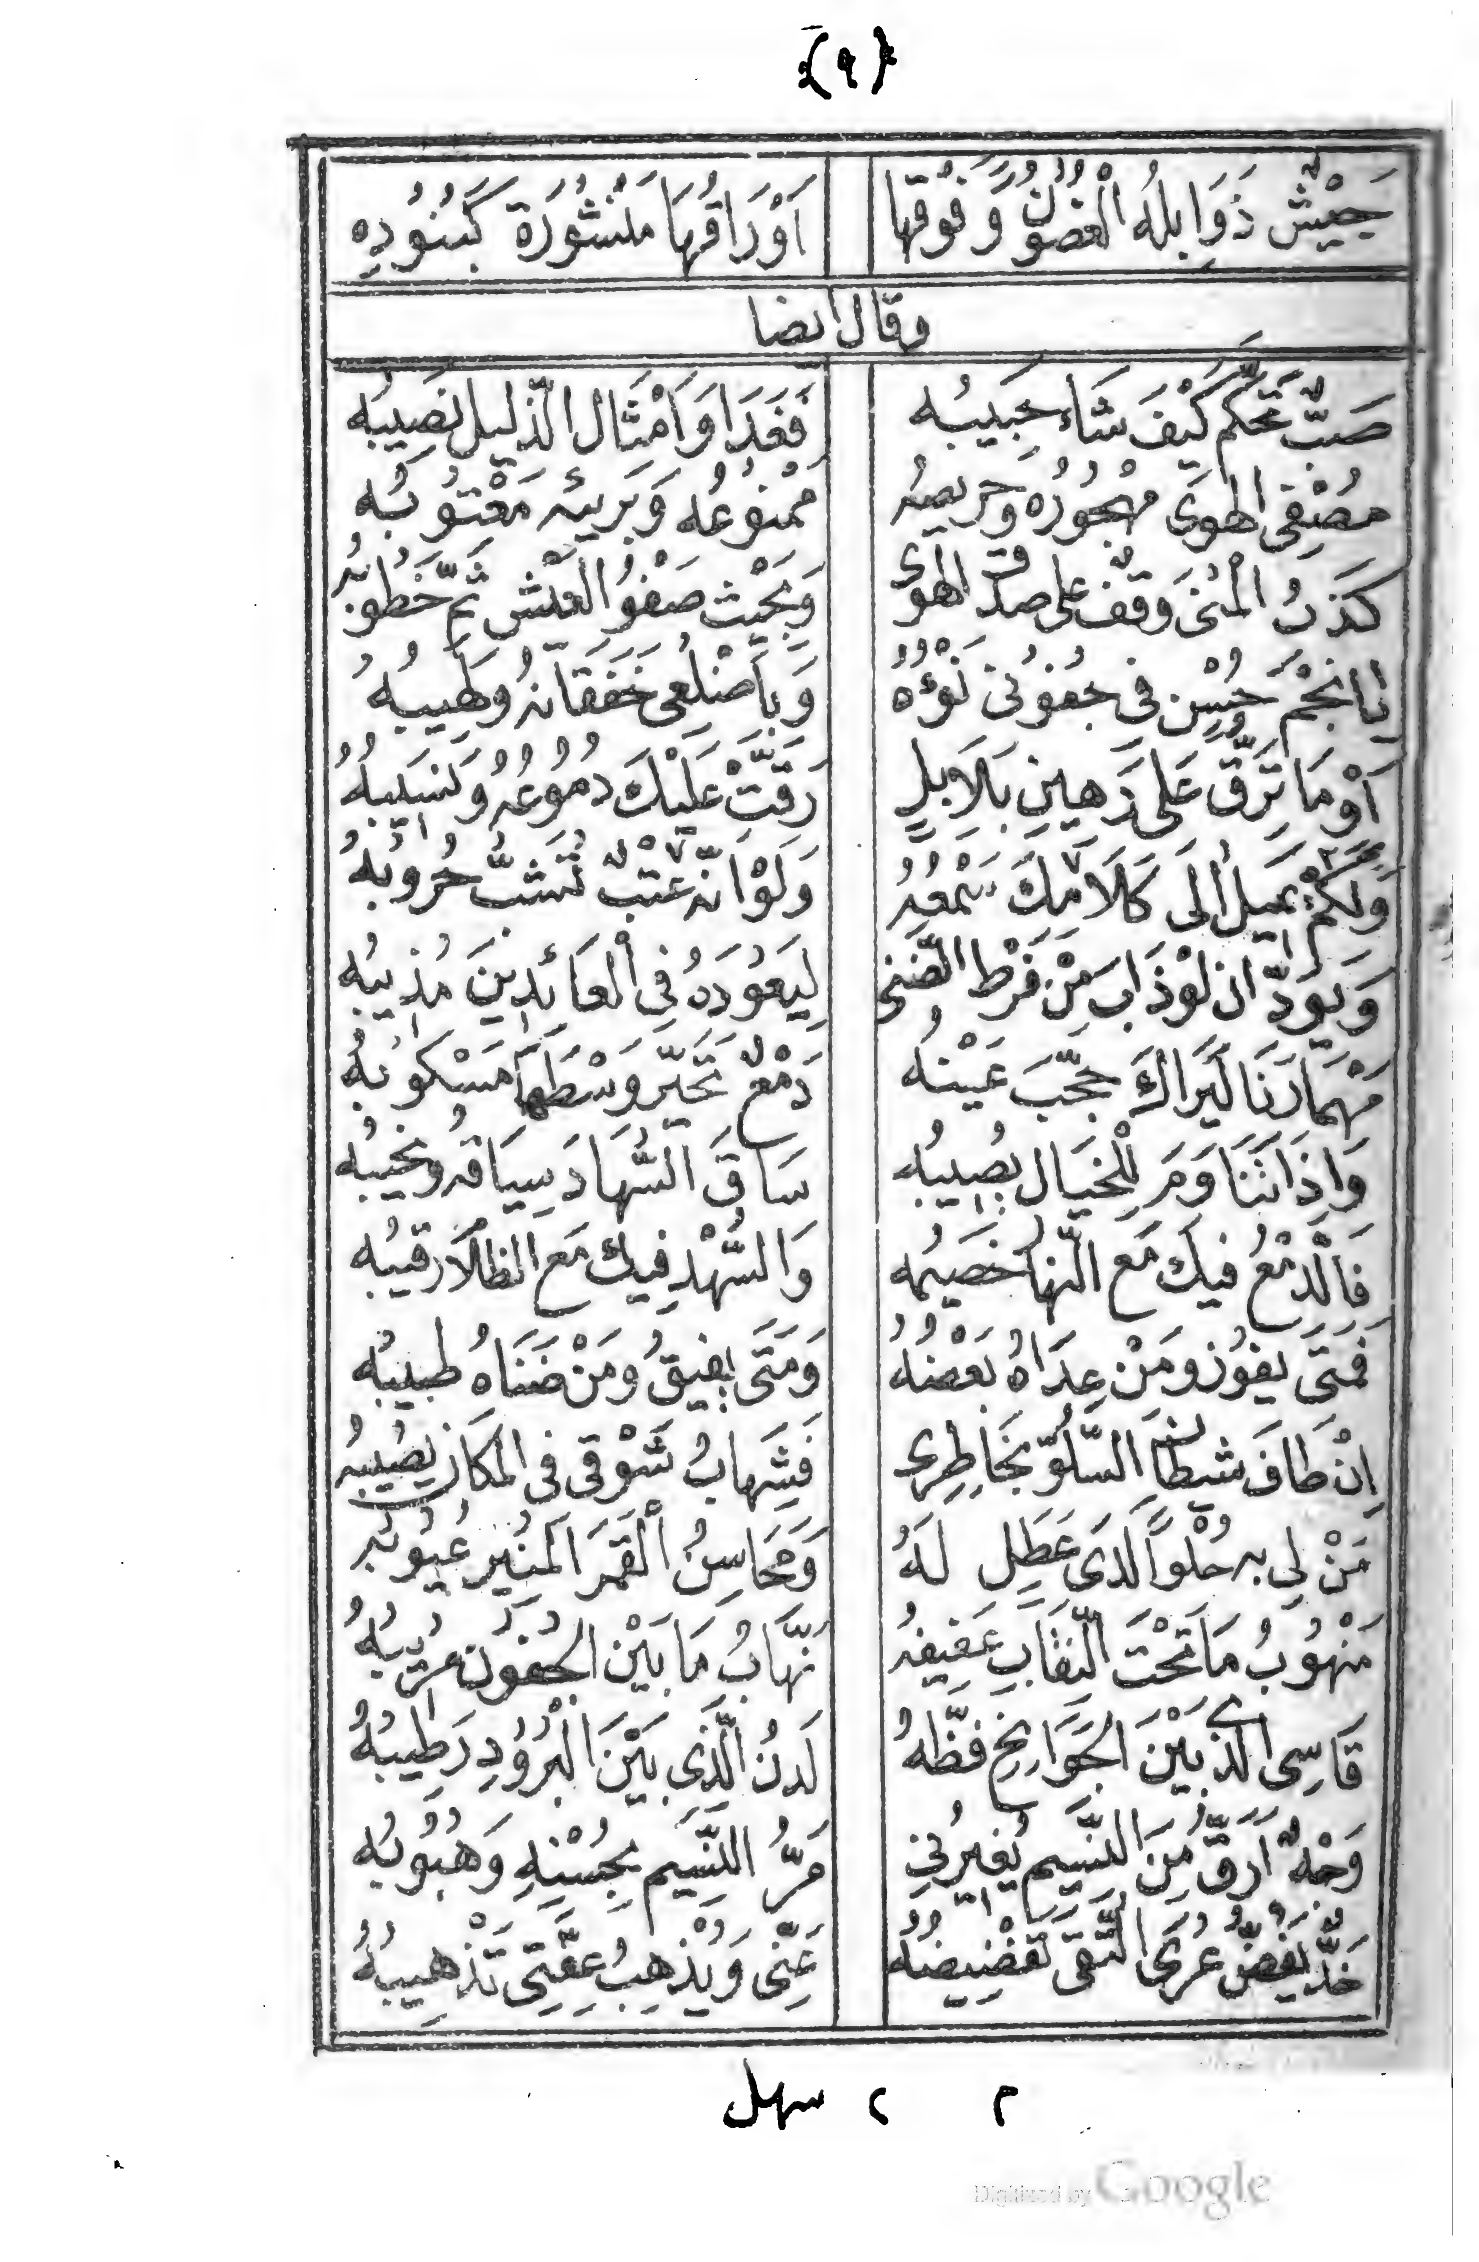 {٩}
جَيْشٌ ذَوَابِلُهُ الْغُصُونُ وَفَوْقَهَا اَوْرَاقُهَا مَنْشُورَة كَبُنُودِهِ
وقال ايضا
صَبٌّ تَحَكَّمَ كَيْفَ شَاءَ حَبِيبُه فَغَدَا وَاَمْثَال الذَّلِيلِ نَصِيبُه
مُصْفِي الهَوَى مَهْجُورُه وَحَرِيصُه مَمْنُوعُه وَبَرِيئه مَعْتُوبُه
كَذَبُ الْمُنَى وَقفٌ على صدق الهوى وَبِحَيْث صَفْوُ العَيْش ثَمَّ خُطُوبُه
يَا نَجْمَ حُسْنٍ فِي جُفُونِي نَوْؤُهُ وَبِاَضْلُعِي خَفَقَانُه وَلَهِيبُهُ
اَوَمَا تَرِقُّ عَلَى رَهِينِ بَلابِلٍ رَقَّتْ عَلَيْكَ دُمُوعُه وَنَسِيبُهُ
وَلَكَمْ يَمِيلُ اِلَى كَلَامِكَ سَمْعُهُ وَلَوْ اَنَّه عَتْبٌ تُشَبُّ حُرُوبُه
وَيَوَدُّ ان لَوْ ذَابَ مِنْ فَرْط الضَّنى لِيَعُودَهُ فِي الْعَائِدِينَ مُذِيبُه
مَهْمَا رَنَا لِيَرَاكَ حَجَّبَ عَيْنَهُ دَمْعٌ تَحَيَّرَ وَسْطَهَا مَسْكُوبُهُ
وَاِذَا تَنَاوَمَ لِلْخَيَالِ يُصِيبُه سَاقَ السُّهَادَ سِيَاقُه وَنَحِيبُه
فَالدَّمْعُ فِيكَ مَعَ النَّهَارِ خَصِيمُه وَالسُّهْدِ فِيكَ مَعَ الظَّلَام رَقِيبُه
فَمَتَى يَفُوزُ وَمَنْ عِدَاهُ بَعْضُهُ وَمَتَى يَفِيقُ وَمَنْ ضَنَاهُ طَبِيبُه
اِنْ طَافَ شيطان السُّلُوِّ بِخَاطِرِي فَشِهَابُ شَوْقِي فِي المَكَان يُصِيبُه
مَنْ لِي بِه حُلْواً لَدَى عَطَلٍ لَهُ وَمَحَاسِنُ الْقَمَر الْمُنِيرِ عُيُوبُه
مَنْهُوبُ مَا تَحْتَ النِّقَابِ عَفِيفُه نَهَّابُ مَا بَيْنَ الجُفُونِ مُرِيبُهُ
قَاسِي الَّذِي بَيْنَ الجَوَانِحِ فَظُّهُ لَدنُ الَّذِي بَيْنَ الْبُرُودِ رَطِيبُهُ
وَجْهٌ اَرَقُّ مِنَ النَّسِيمِ يُغِيرُنِي مَرُّ النَّسِيمِ بِحُسْنِهِ وَهُبُوبُه
خَدٌّ يَفُضُّ عُرَى التُّقَى تَفْضِيضُهُ عَنِّي وَيُذْهِبُ عِفَّتِي تَذْهِيبُهُ
م ٢ سهل
Digitized by Google